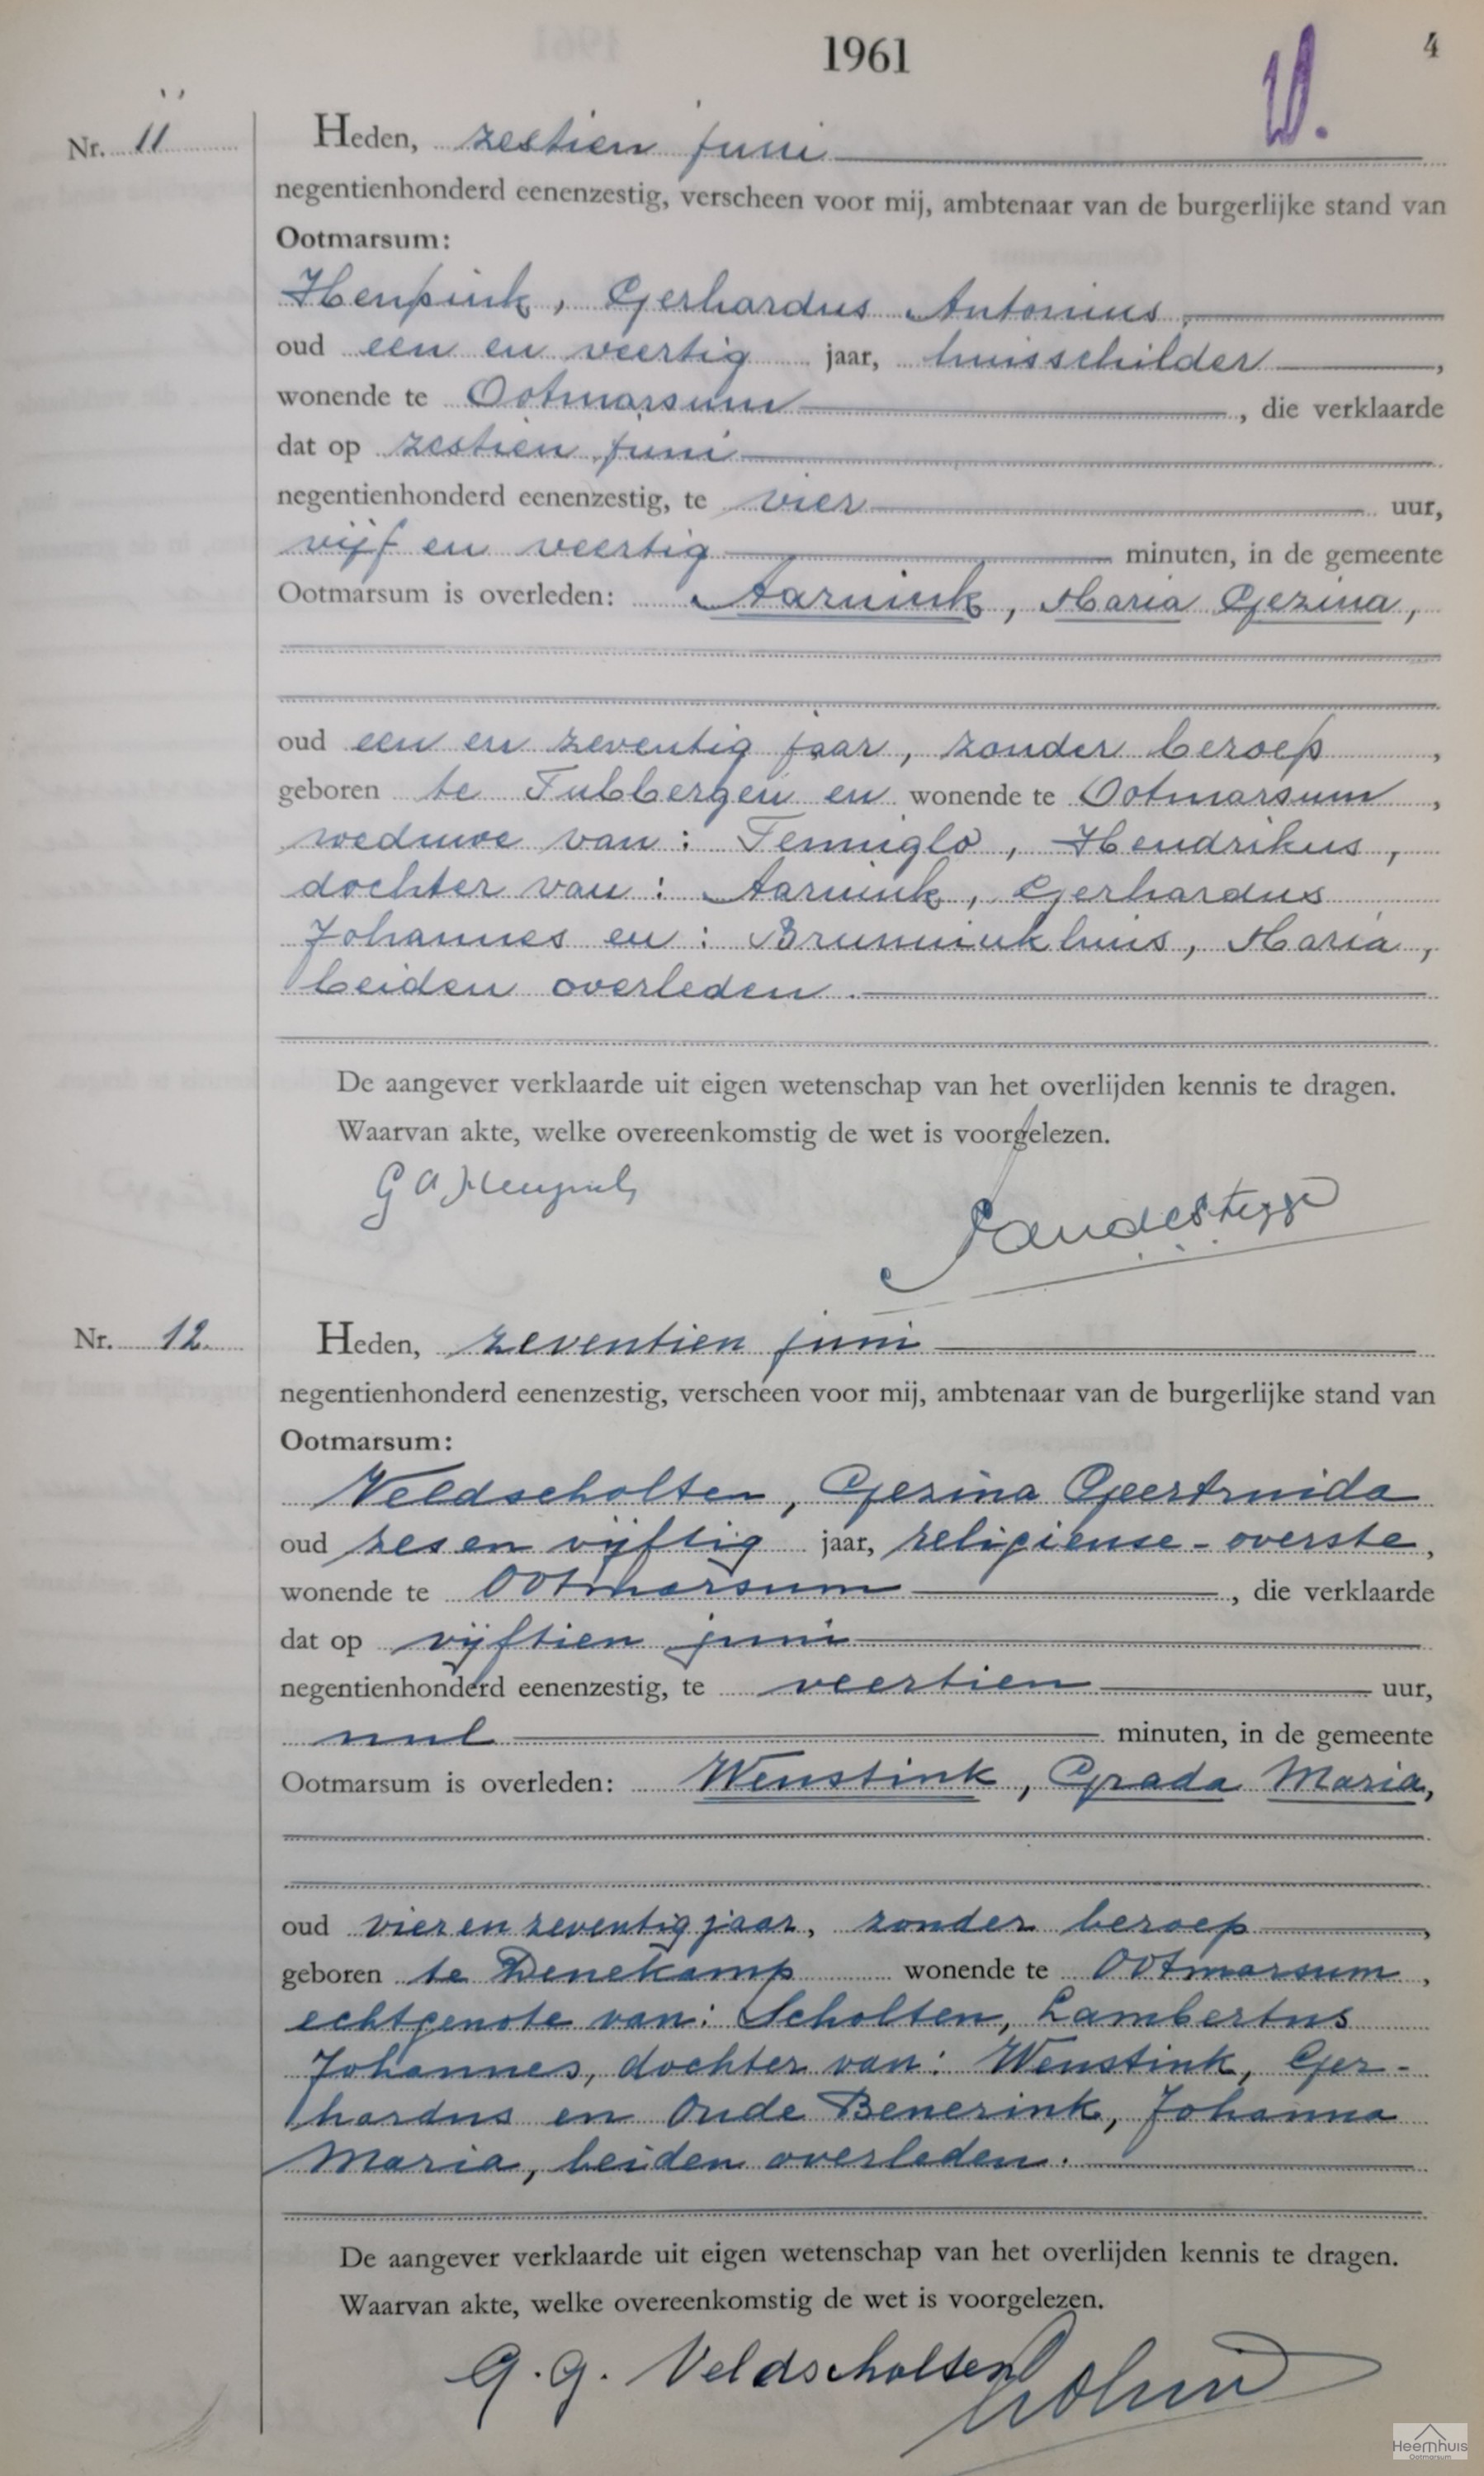 1961
4
Nr. 11
Heden, zestien juni
negentienhonderd eenenzestig, verscheen voor mij, ambtenaar van de burgerlijke stand van
Ootmarsum:
Henpink, Gerhardus Antonius,
oud een en veertig jaar, huisschilder,
wonende te Ootmarsum, die verklaarde
dat op zestien juni
negentienhonderd eenenzestig, te vier uur,
vijf en veertig minuten, in de gemeente
Ootmarsum is overleden: Aarnink, Maria Gezina,
oud een en zeventig jaar, zonder beroep,
geboren te Tubbergen en wonende te Ootmarsum,
weduwe van: Temniglo, Hendrikus,
dochter van: Aarnink, Gerhardus
Johannes en: Brunninkhuis, Maria,
beiden overleden.
De aangever verklaarde uit eigen wetenschap van het overlijden kennis te dragen.
Waarvan akte, welke overeenkomstig de wet is voorgelezen.
G A Henpink
Nr. 12.
Heden, zeventien juni
negentienhonderd eenenzestig, verscheen voor mij, ambtenaar van de burgerlijke stand van
Ootmarsum:
Veldscholten, Gezina Geertruida
oud zes en vijftig jaar, religieuse-overste,
wonende te Ootmarsum, die verklaarde
dat op vijftien juni
negentienhonderd eenenzestig, te veertien uur,
nul minuten, in de gemeente
Ootmarsum is overleden: Wenstink, Grada Maria,
oud vier en zeventig jaar, zonder beroep,
geboren te Denekamp wonende te Ootmarsum,
echtgenote van: Scholten, Lambertus
Johannes, dochter van: Wenstink, Ger-
hardus en Oude Benerink, Johanna
Maria, beiden overleden.
De aangever verklaarde uit eigen wetenschap van het overlijden kennis te dragen.
Waarvan akte, welke overeenkomstig de wet is voorgelezen.
G. G. Veldscholten
Heemhuis
Ootmarsum